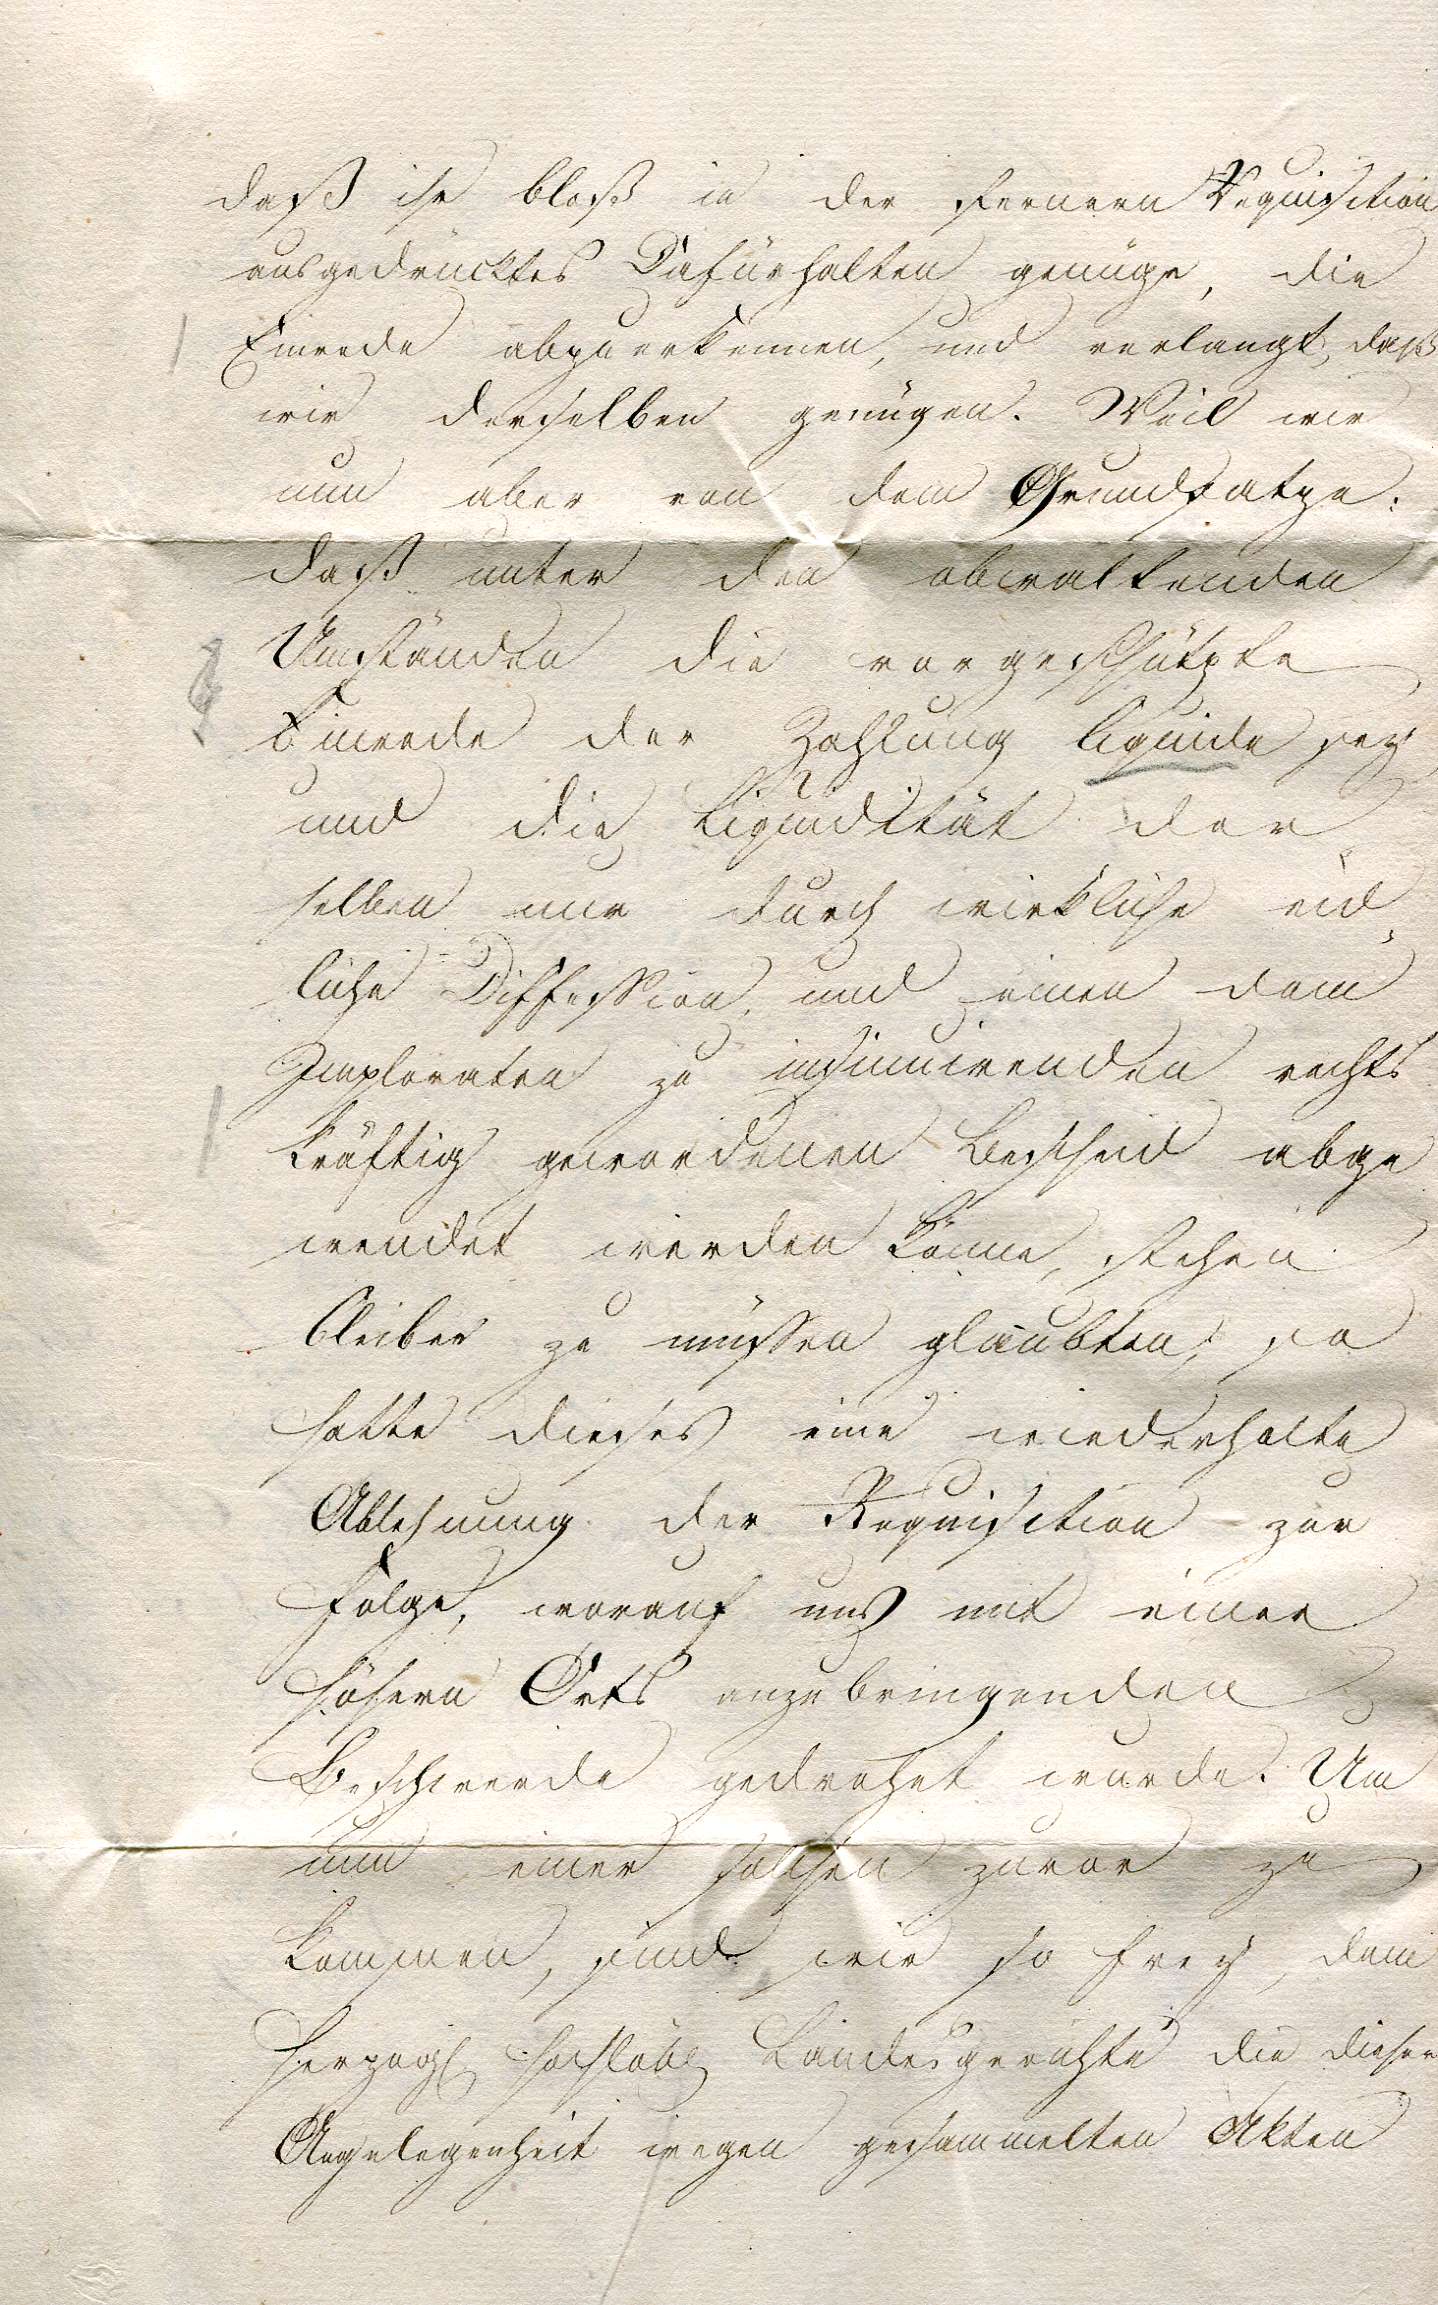 daß ihr bloß in der fernern Requisition
ausgedrücktes Dafürhalten genüge, die
Einrede abzuerkennen, und verlangt, daß
wir derselben genügen. Weil wir
nun aber von dem Grundsatze:
daß unter den obwaltenden
Umständen die vorgeschützte
Einrede der Zahlung liquide sey
und die Liquidität der
selben nur durch wirkliche eid
liche Diffession und einen dem
Imploraten zu insinuirenden rechts
kräftig gewordenen Bescheid abge
wendet werden könne, stehen
bleiben zu müssen glaubten, so
hatte dieses eine wiederholte
Ablehnung der Requisition zur
Folge, worauf uns mit einer
höhern Orts anzubringenden
Beschwerde gedrohet wurde. Um
nun einer solchen zuvor zu
kommen, sind wir so frey, dem
Herzogl hochlöbl Landesgerichte die dieser
Angelegenheit wegen gesammelten Akten